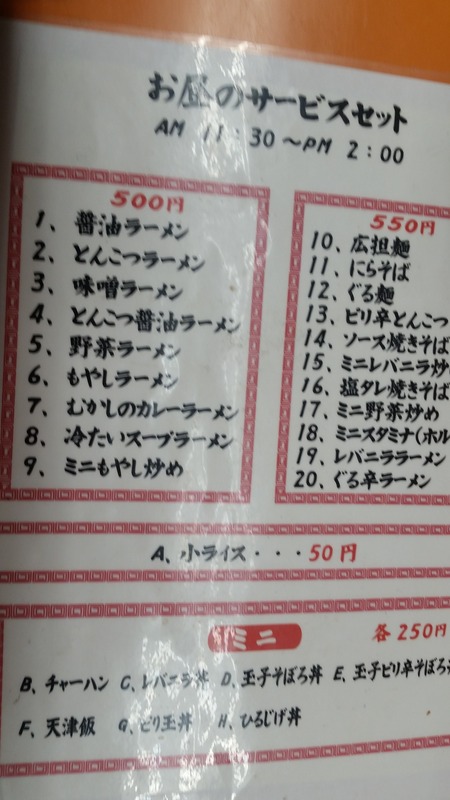 お昼のサービスセット
AM 11:30〜PM 2:00
500円
1、醤油ラーメン
2、とんこつラーメン
3、味噌ラーメン
4、とんこつ醤油ラーメン
5、野菜ラーメン
6、もやしラーメン
7、むかしのカレーラーメン
8、冷たいスープラーメン
9、ミニもやし炒め
550円
10、広担麺
11、にらそば
12、ぐる麺
13、ピリ辛とんこつ
14、ソース焼きそば
15、ミニレバニラ炒
16、塩タレ焼きそば
17、ミニ野菜炒め
18、ミニスタミナ(ホル
19、レバニララーメン
20、ぐる辛ラーメン
A、小ライス・・・50円
ミニ 各250円
B、チャーハン C、レバニラ丼 D、玉子そぼろ丼 E、玉子ピリ辛そぼろ
F、天津飯 G、ピリ玉丼 H、ひるじげ丼